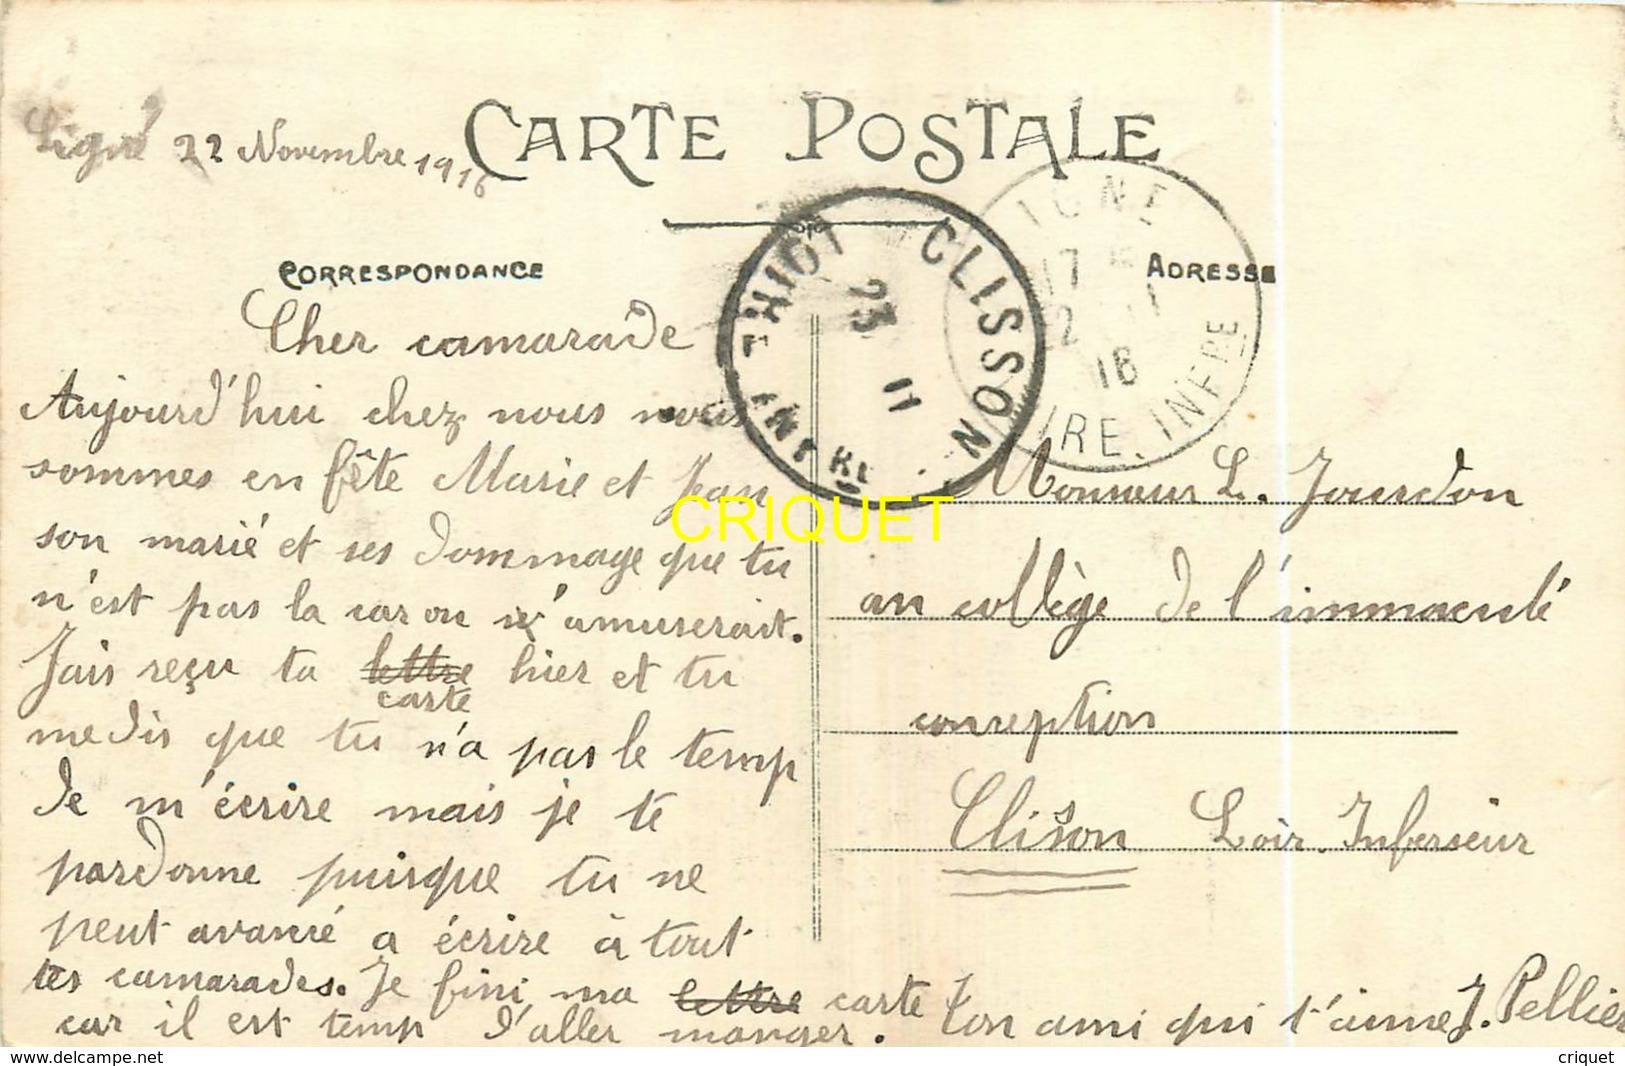 Ligné 22 Novembre 1916
CARTE POSTALE
CORRESPONDANCE
ADRESSE
CLISSON
23
11
17
18
Cher camarade
Aujourd'hui chez nous nous
sommes en fête Marie et Jean
son marié et ses dommage que tu
n'est pas la car on s'amuserait.
Jais reçu ta lettre hier et tu
carte
me dis que tu n'a pas le temp
de m'écrire mais je te
pardonne puisque tu ne
peut avancé a écrire à tout
tes camarades. Je fini ma lettre carte
car il est temp d'aller manger.
Ton ami qui t'aime J. Pellier
Monsieur L. Jourdon
au collège de l'immaculé
conception
Clison Loir. Inferieur
CRIQUET
www.delcampe.net
criquet